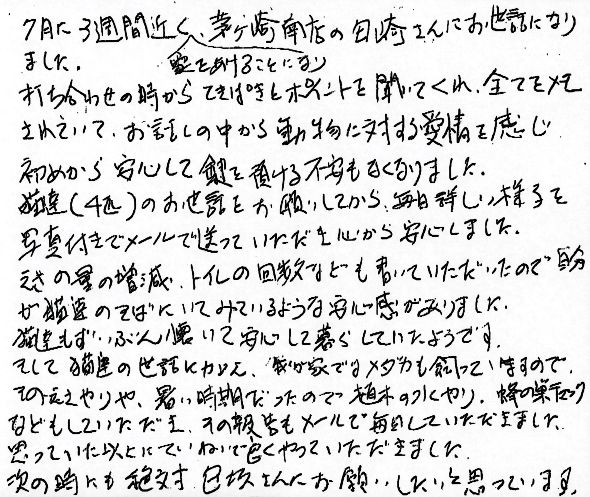 7月に3週間近く、茅ヶ崎南店の田崎さんにお世話になり
ました。 家をあけることになり
打ち合わせの時からてきぱきとポイントを聞いてくれ、全てをメモ
されていて、お話しの中から動物に対する愛情を感じ
初めから安心して鍵を預ける不安もなくなりました。
猫達(4匹)のお世話をお願いしてから、毎日詳しい様子を
写真付きでメールで送っていただき心から安心しました。
えさの量の増減、トイレの回数なども書いていただいたので自分
が猫達のそばにいてみているような安心感がありました。
猫達もずいぶん懐いて安心して暮らしていたようです。
そして猫達の世話に加え、我が家ではメダカも飼っていますので、
そのえさやりや、暑い時期だったので植木の水やり、蜂の巣チェック
などもしていただき、その報告もメールで毎日していただきました。
思っていた以上にていねいで良くやっていただきました。
次の時にも絶対 さんにお願いしたいと思っています。